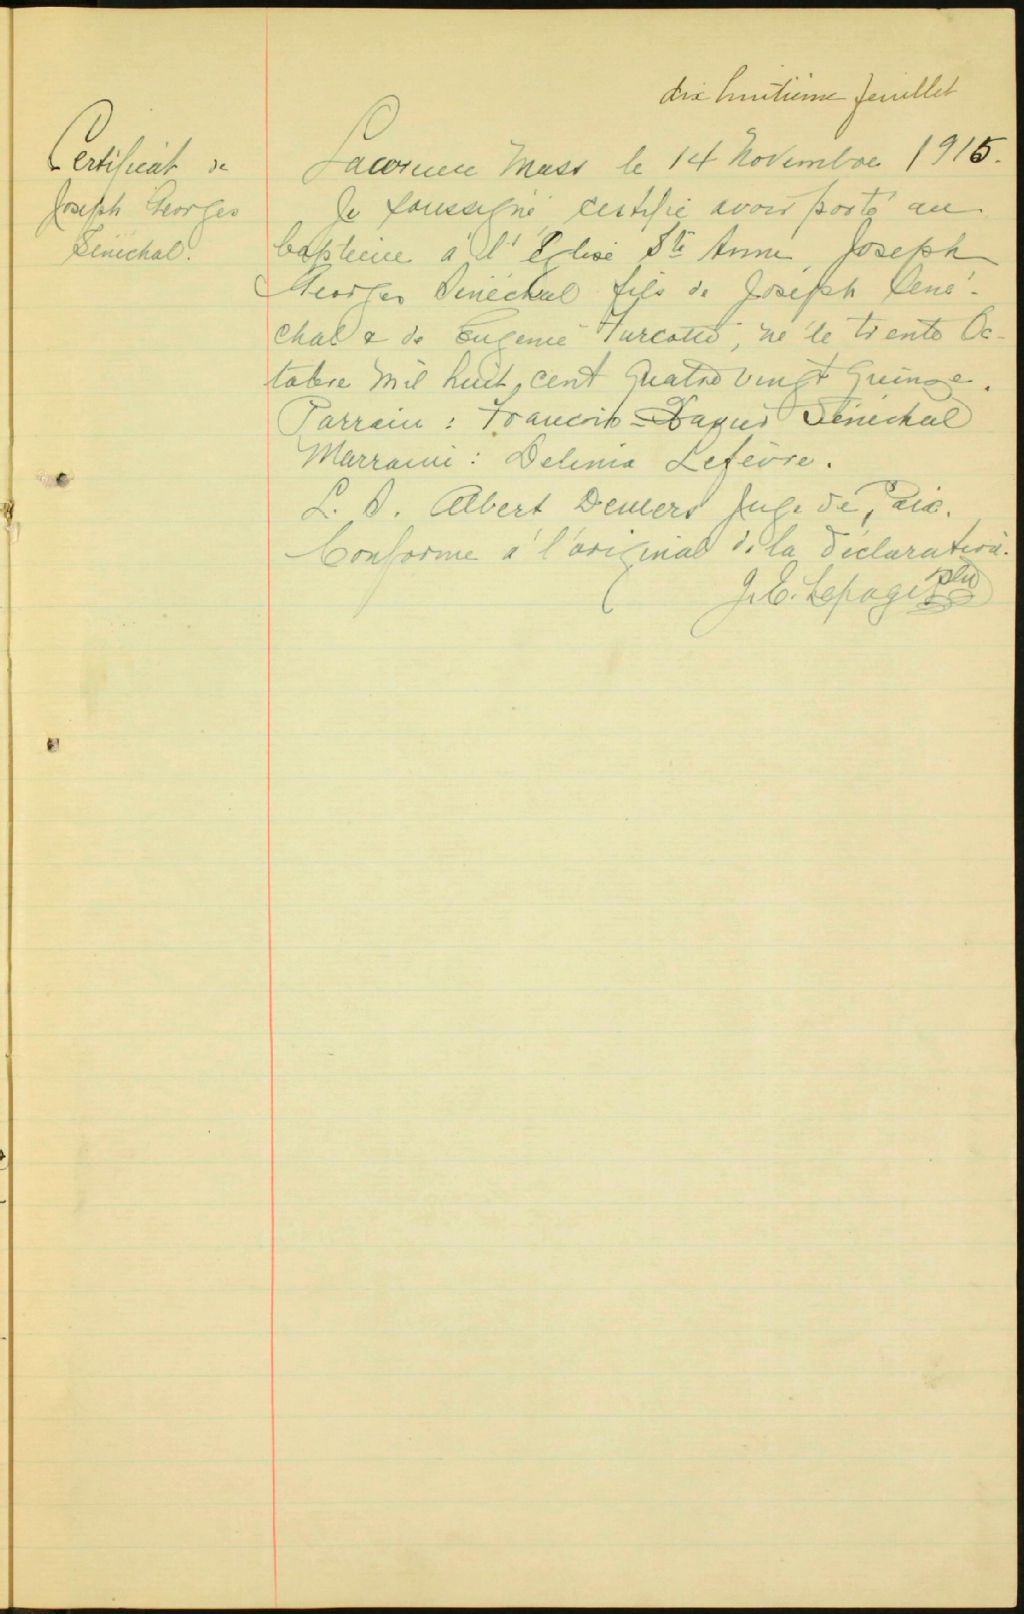 dix huitième feuillet
Certificat de
Joseph Georges
Sénéchal.
Lawrence Mass le 14 Novembre 1915.
Je soussigné certifie avoir porté au
baptême à l'Église Ste Anne, Joseph
Georges Sénéchal fils de Joseph Séné-
chal & de Eugenie Turcotte, né le trente Oc-
tobre mil huit cent quatre vingt quinze.
Parrain : François-Xavier Sénéchal
Marraine : Delima Lefèvre.
L. S. Albert Demers Juge de Paix.
Conforme à l'original de la déclaration.
J. E. Lepage ptre